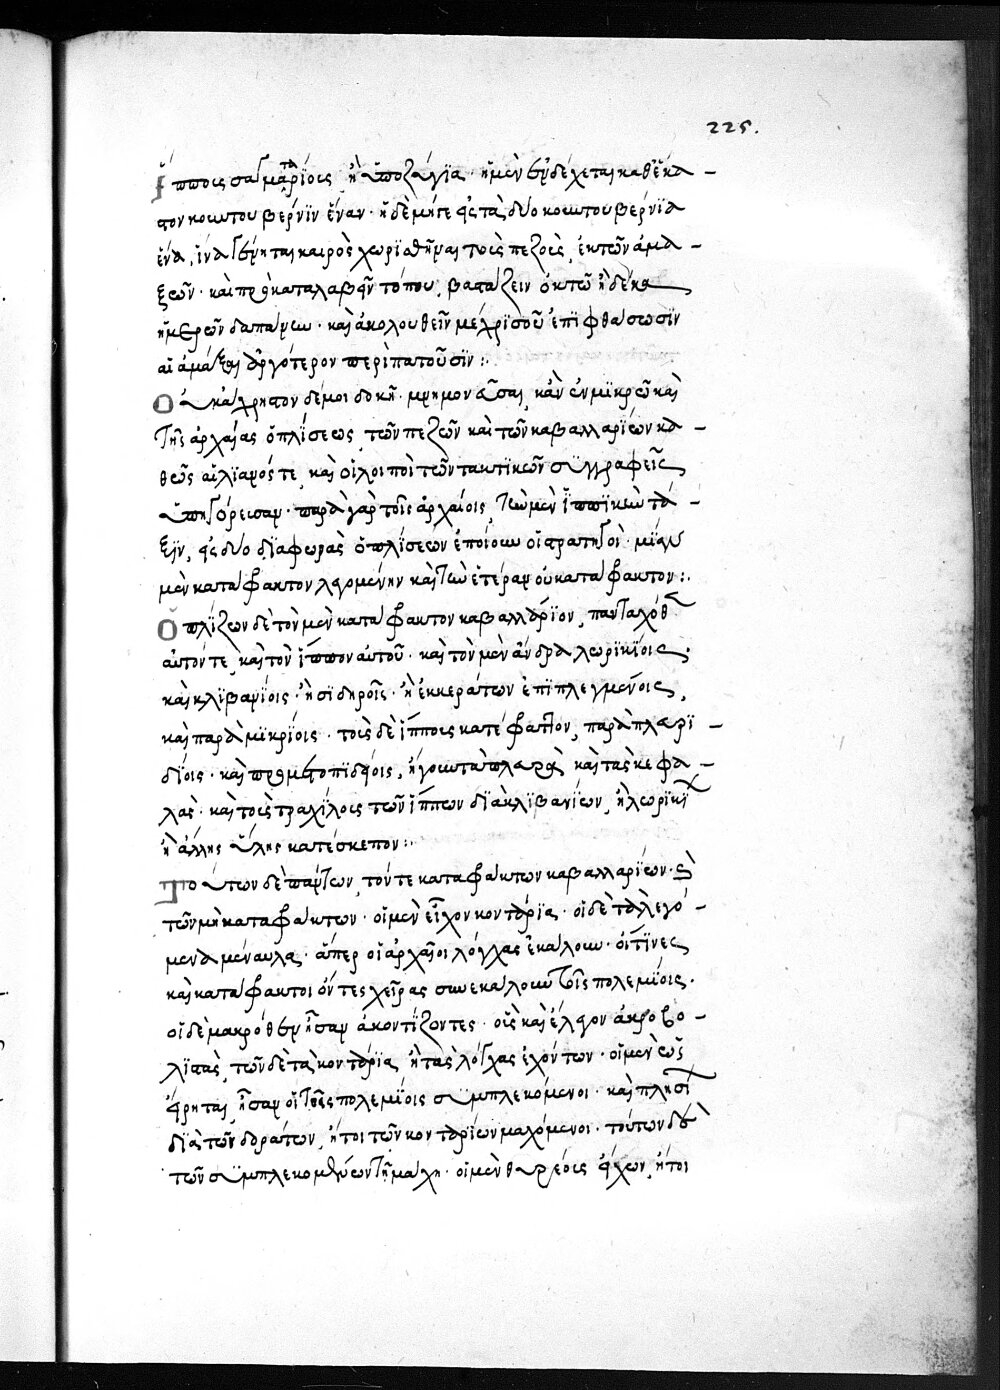 225.
ἵπποις σαγματαρίοις ἢ ὑποζύγια · ἢ μὲν ἐνδέχεται καθ ἕκα -
στον κοντουβέρνϊν ἕναν · ἢ δὲ μήγε εἰς τὰ δύο κοντουβέρνϊα
ἕνα, ἵνα γένηται καιρὸς χωρϊσθῆναι τοὺς πεζοὺς, ἐκ τῶν ἁμα -
ξῶν · καὶ προκαταλαβεῖν τόπον, βαστάζειν ὀκτὼ ἢ δέκα
ἡμερῶν δαπάνην · καὶ ἀκολουθεῖν μέχρις οὗ ἐπϊφθάσωσϊν
αἱ ἅμαξαι ἀργότερον περιπατοῦσϊν :
Οὐκ ἄχρηστον δέ μοι δοκῆ · μνημονεῦσαι, κἂν ἐν μϊκρῶ καὶ
τῆς ἀρχαίας ὁπλίσεως, τῶν πεζῶν καὶ τῶν καβαλλαρίων κα -
θὼς αἰλϊανός τε, καὶ οἱ λοιποὶ τῶν τακτϊκῶν συγγραφεῖς
ὑπηγόρευσαν · παρὰ γὰρ τοῖς ἀρχαίοις, τὴν μὲν ἱππϊκὴν τά -
ξϊν, εἰς δύο δϊαφορὰς ὁπλίσεων ἐποίουν οἱ στρατηγοὶ · μίαν
μὲν κατάφρακτον λεγομένην καὶ τὴν ἑτέραν οὐ κατάφρακτον :
Ὅπλϊζον δὲ τὸν μὲν κατάφρακτον καβαλλάρϊον, πανταχόθεν
αὐτόν τε, καὶ τὸν ἵππον αὐτοῦ · καὶ τὸν μὲν ἄνδρα λωρϊκϊοις ·
καὶ κλϊβανίοις · ἢ σϊδηροῖς · ἢ ἐκ κεράτων ἐπϊπλεγμένοις,
καὶ παραμϊκρίοις · τοὺς δὲ ἵππους κατέφρατον, παραπλευρϊ -
δίοις · καὶ προμετοπϊδίοις, ἤγουν τὰ πλευρὰ καὶ τὰς κεφα -
λὰς · καὶ τοὺς τραχήλους τῶν ἵππων δϊὰ κλϊβανίων, ἢ λωρϊκϊ
ἢ ἄλλης ὕλης κατέσκεπον :
Τούτων δὲ πάντων, τόν τε καταφράκτων καβαλλαρίων · καὶ
τῶν μὴ καταφράκτων · οἱ μὲν εἶχον κοντάρϊα · οἱ δὲ τὰ λεγό -
μενα μέναυλα · ἅπερ οἱ ἀρχαῖοι λόγχας ἐκάλουν · οἵτϊνες
καὶ κατάφρακτοι ὄντες χεῖρας συνεκάλουν τοῖς πολεμϊοις ·
οἱ δὲ μακρόθεν ἦσαν ἀκοντϊζοντες · οὓς καὶ ἔλεγον ἀκροβο -
λϊστὰς, τῶν δὲ τὰ κοντάρϊα, ἢ τὰς λόγχας ἐχόντων · οἱ μὲν ὡς
εἴρηται, ἦσαν οἱ τοῖς πολεμϊοις συμπλεκόμενοι · καὶ πλησϊ
δϊὰ τῶν δοράτων, ἤτοι τῶν κονταρίων μαχόμενοι · τούτων δὲ
τῶν συμπλεκομένων τῇ μάχη · οἱ μὲν θυρεοὺς εἶχων, ἤτοι